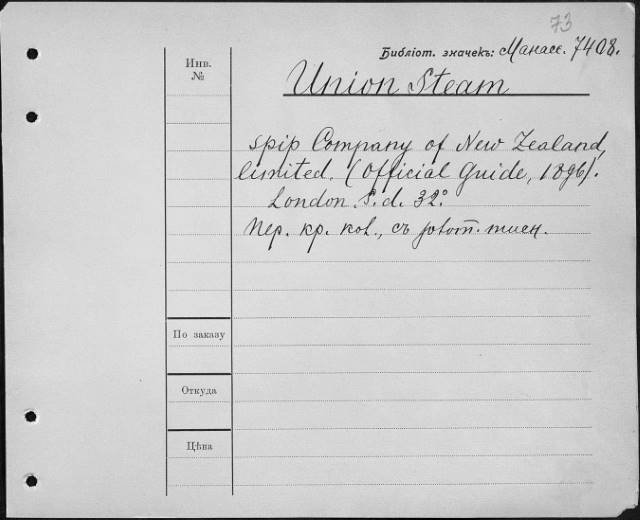 73
Библіот. значекъ: Манасе. 7408.
Инв.
№
Union Steam
spip Company of New Zealand,
limited. (Official Guide, 1896).
London. S. d. 32°
Пер. кр. кол., съ тисн.
По заказу
Откуда
Цѣна